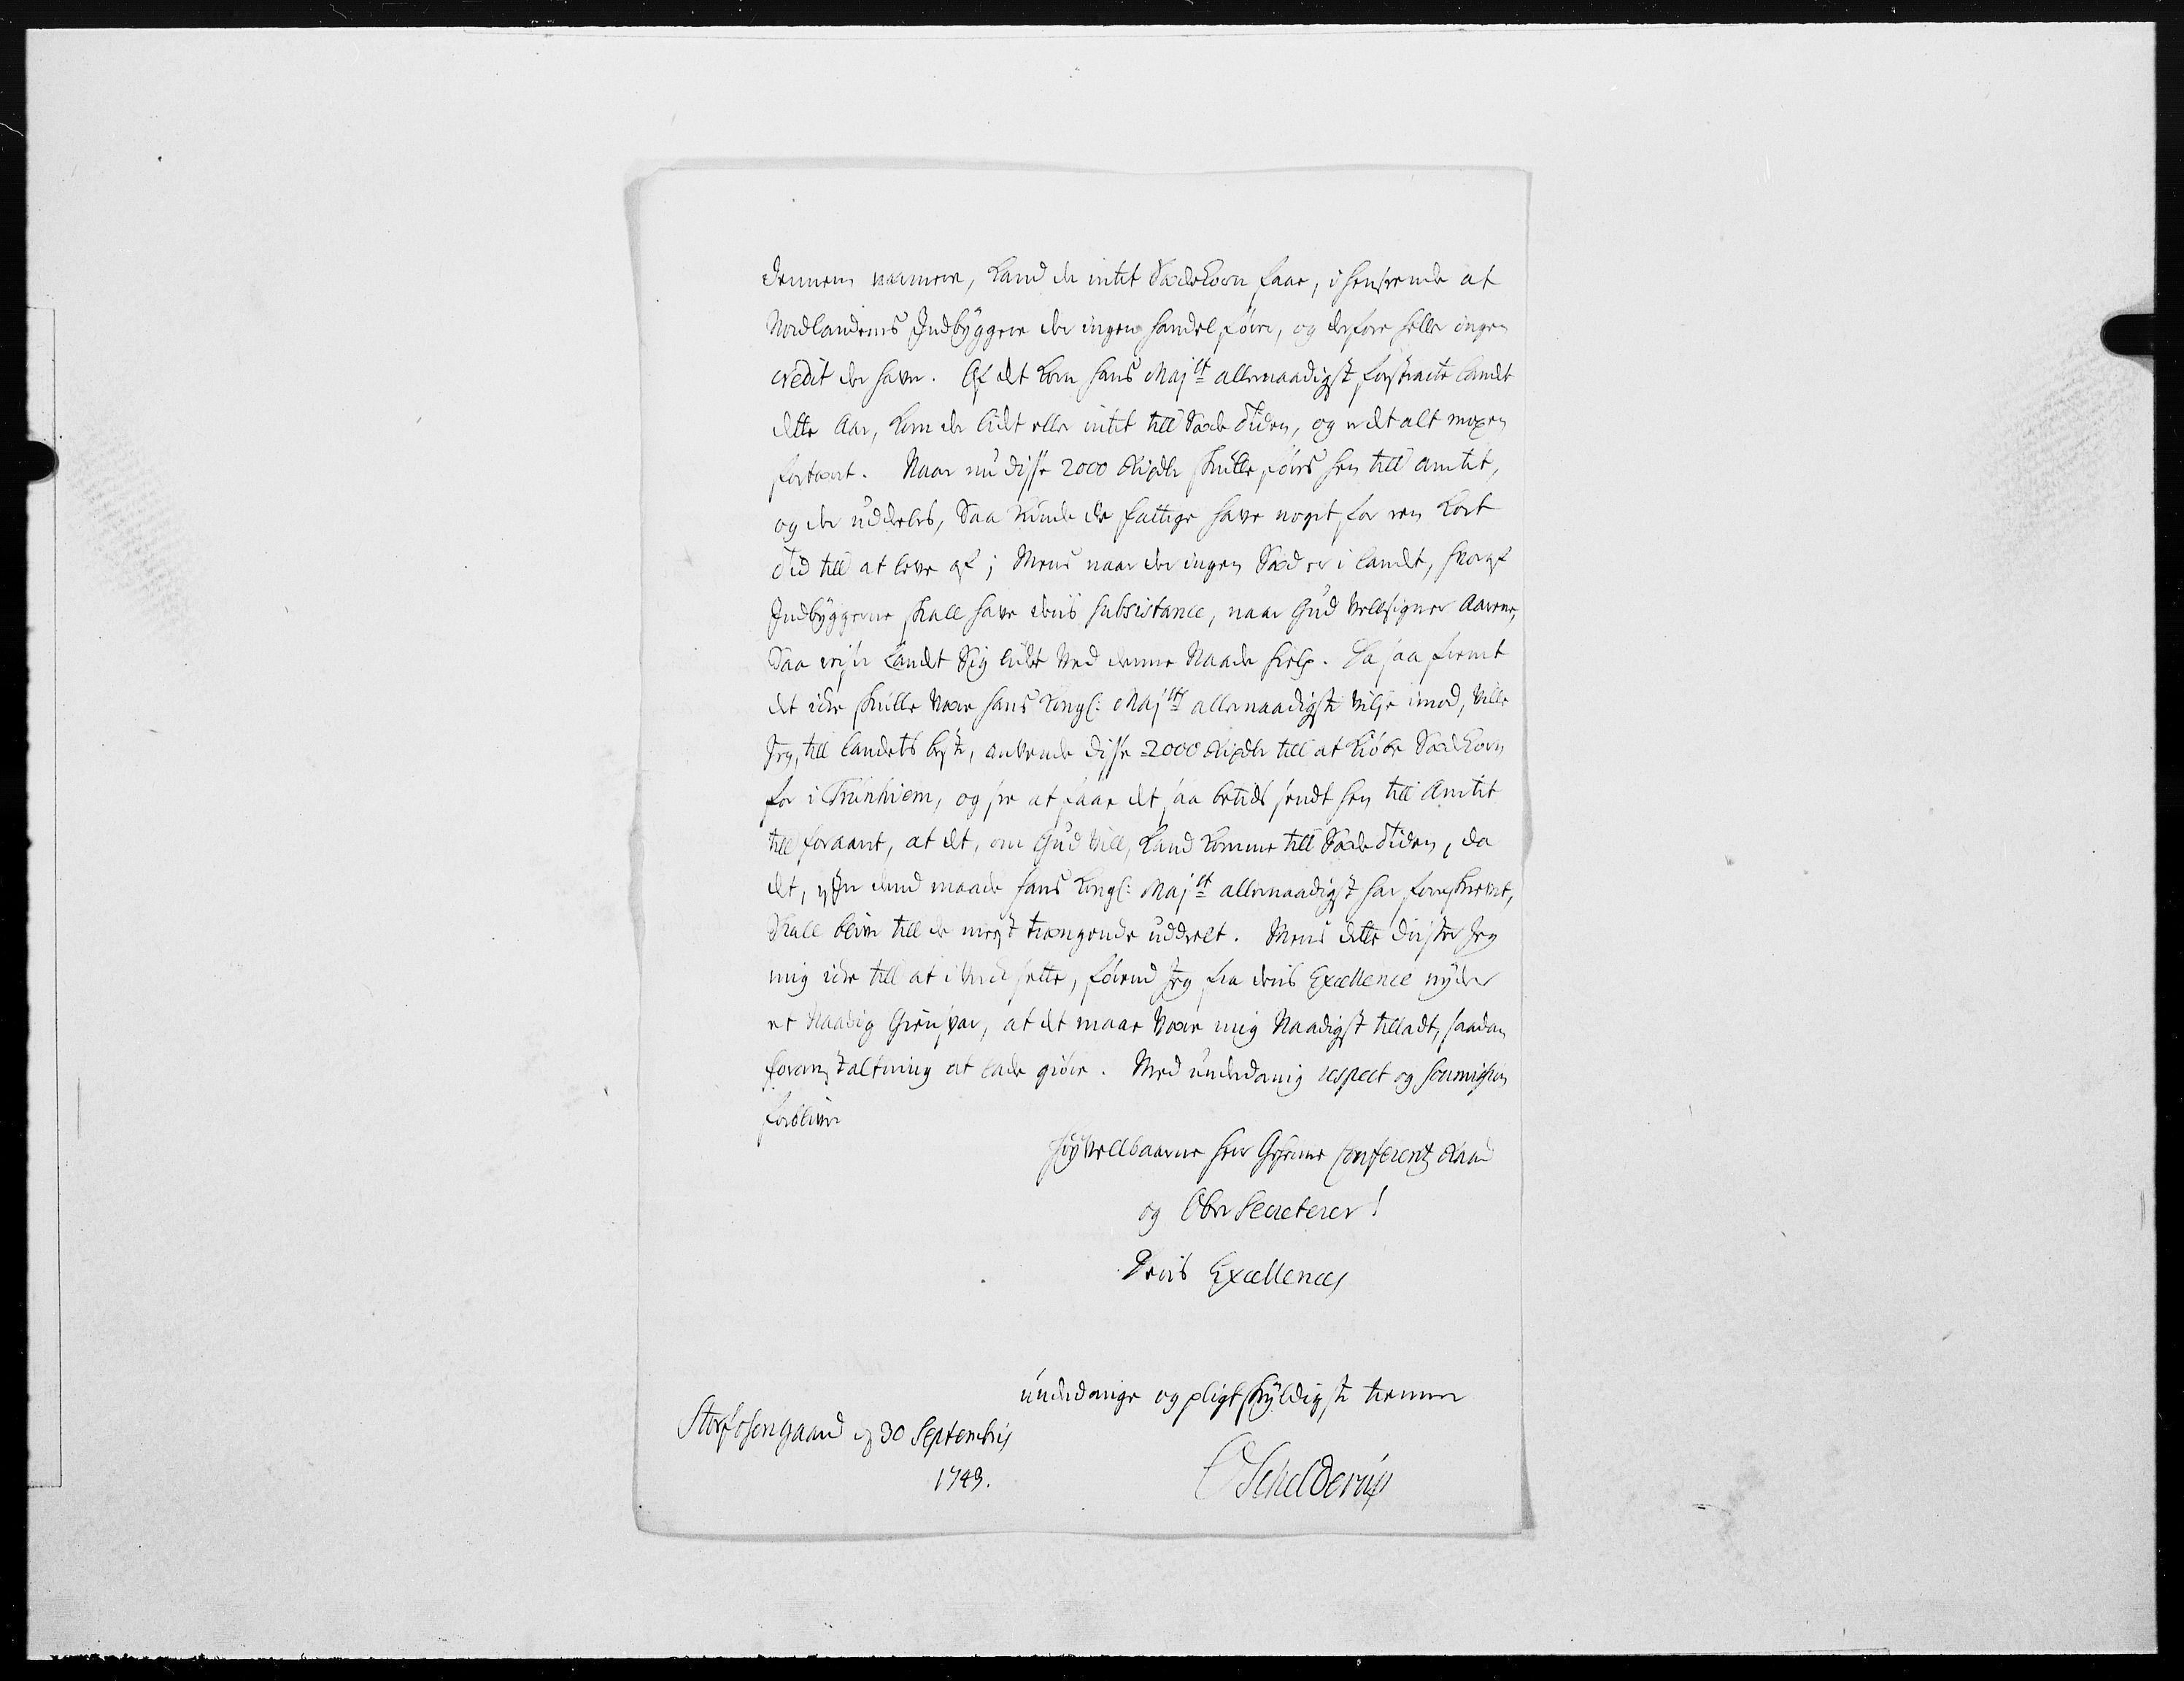 dennem nærmere, Kand de intet Sædekorn faae, i henseende at
Nordlandenes Indbyggere der ingen handel føre, og derfore heller ingen
credit der have. Af det Korn hans Majst allernaadigst forstracte Landet
dette Aar, kom der lidet eller intet till Sæde Tiden, og er det alt mexen
fortært. Naar nu disse 2000 Rixdlr skulle føris hen till amtet,
og der uddeeles, Saa kunde de fattige have noget for een kort
Tid till at leve af; Mens naar der ingen Sæd er i Landet, hvoraf
Indbyggerne skall have deris subsistance, naar Gud Velsigner Aarene,
Saa reyser Landet Sig lidet Ved denne Naade hielp. Da saa fremt
det icke skulle Være hans Kongl: Majsts allernaadigste Vilje imod, Ville
Jeg, till Landets beste, anvende disse 2000 Rixdlr till at Kiøbe Sædekorn
for i Trunhiem, og see at faae det saa betids sendt hen till Amtet
till foraaret, at det, om Gud Vill, Kand komme till Sæde Tiden, da
det, efter dend maade hans Kongl: Majst allernaadigst har foreskrevet,
Skall blive till de meest trængende uddeelt. Mens dette drister Jeg
mig icke till at i Verck sette, førend Jeg fra deris Excellence nyder
et Naadig Giensvar, at det maae Være mig Naadigst tilladt, saadan
foranstaltning at lade giøre. Med underdanig respect og soumission
forbliver
Høyvellbaarne Herr Geheime Conferentz Raad
og Ober Secreterer!
Deris Excellences
underdanige og pligtskyldigste tienner
Storfosengaard d 30 Septembris
1743.
O Schelderup